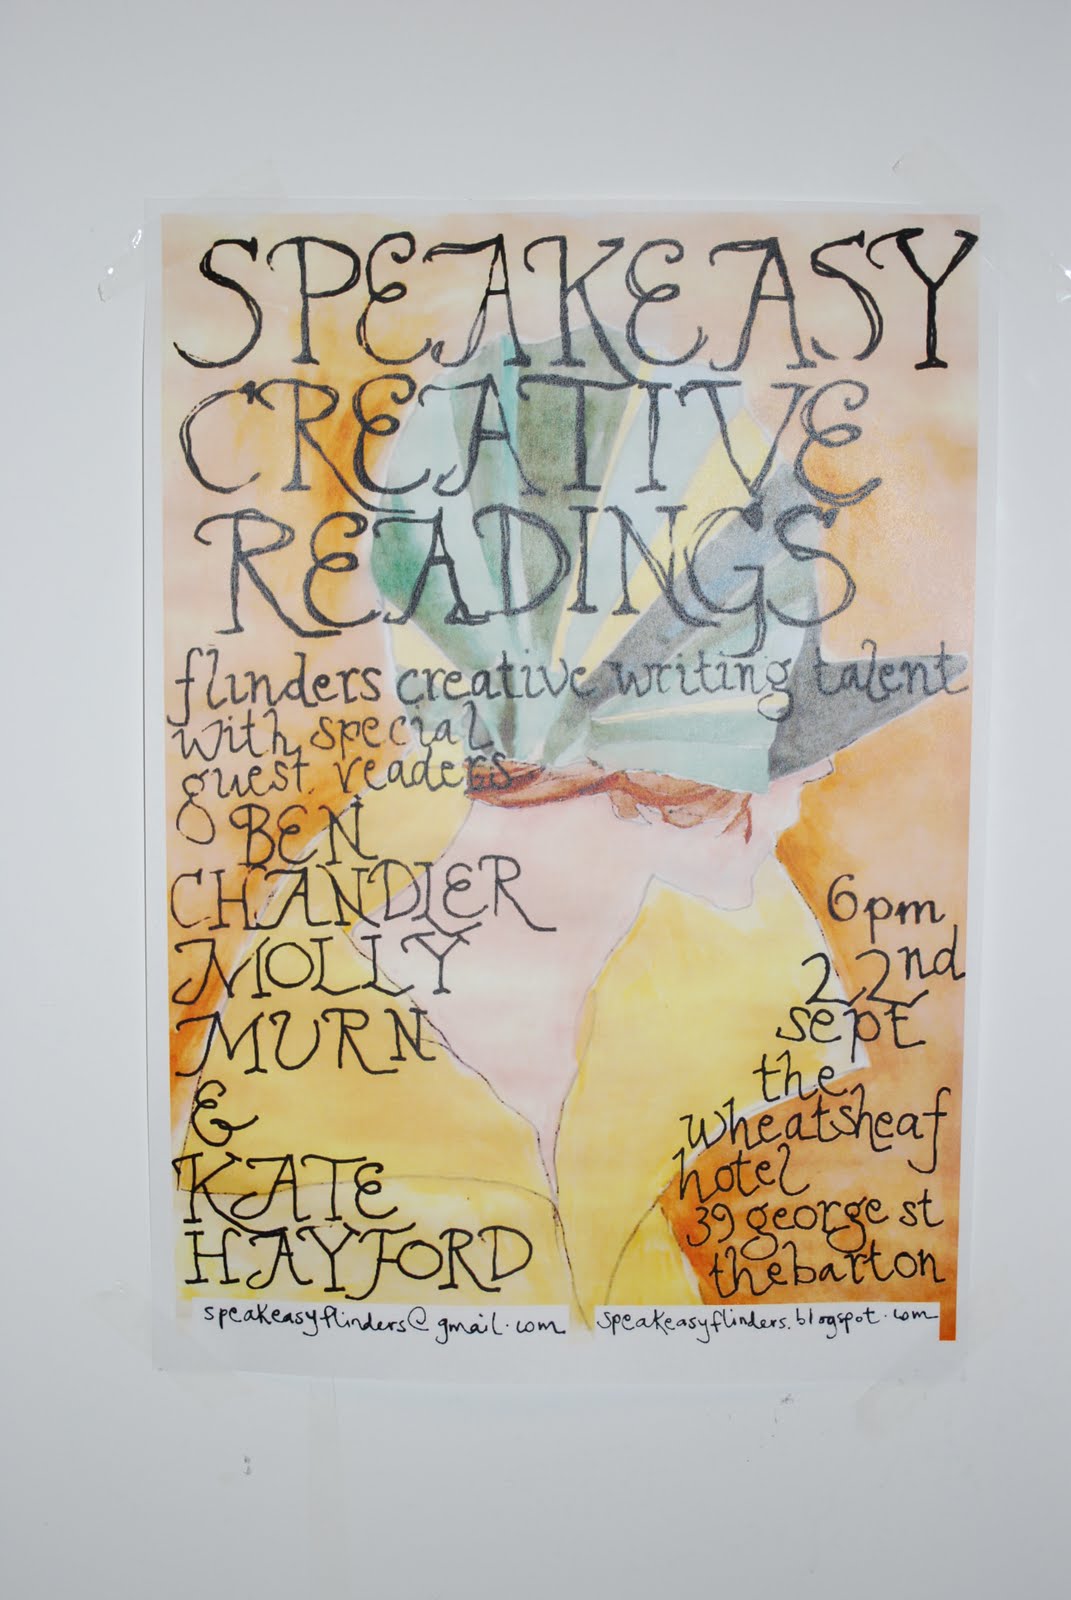 SPEAKEASY
CREATIVE
READINGS
flinders creative writing talent
with special
guest readers
BEN
CHANDLER
MOLLY
MURN
&
KATE
HAYFORD
6pm
22nd
sept
the
wheatsheaf
hotel
39 george st
thebarton
speakeasyflinders@gmail.com
speakeasyflinders.blogspot.com